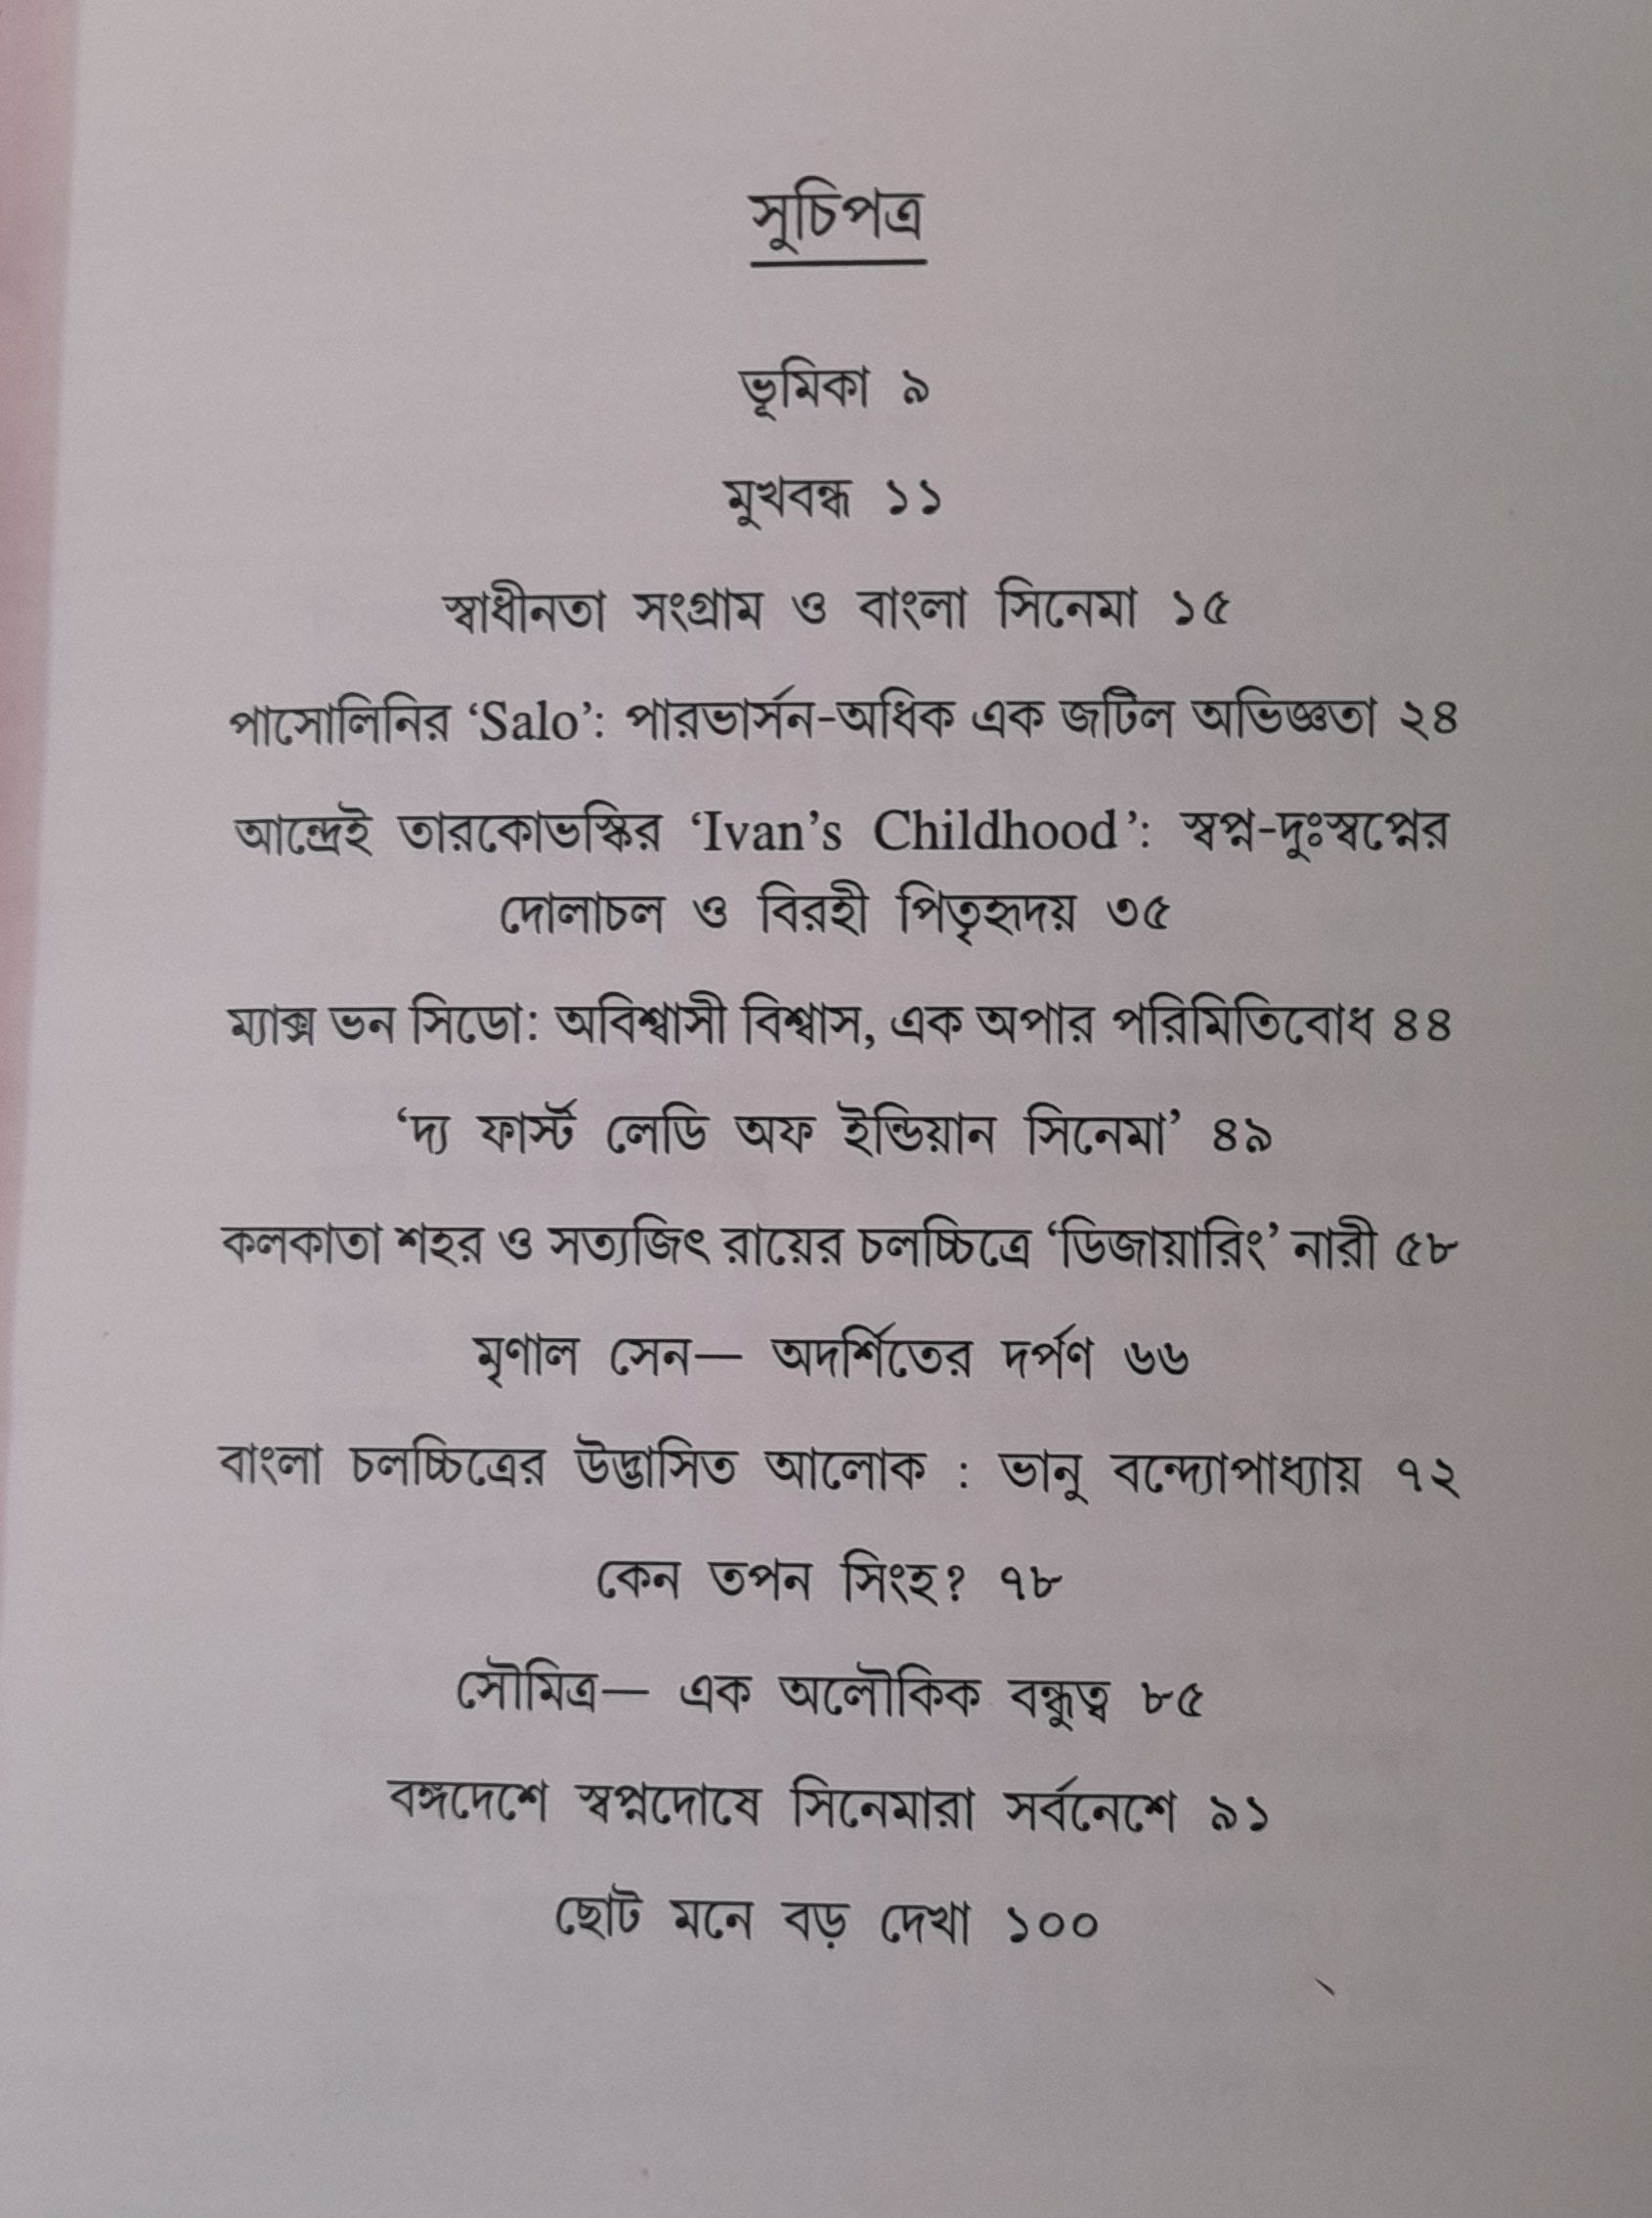 সুচিপত্র
ভূমিকা ৯
মুখবন্ধ ১১
স্বাধীনতা সংগ্রাম ও বাংলা সিনেমা ১৫
পাসোলিনির ‘Salo’: পারভার্সন-অধিক এক জটিল অভিজ্ঞতা ২৪
আন্দ্রেই তারকোভস্কির ‘Ivan’s Childhood’: স্বপ্ন-দুঃস্বপ্নের
দোলাচল ও বিরহী পিতৃহৃদয় ৩৫
ম্যাক্স ভন সিডো: অবিশ্বাসী বিশ্বাস, এক অপার পরিমিতিবোধ ৪৪
‘দ্য ফার্স্ট লেডি অফ ইন্ডিয়ান সিনেমা’ ৪৯
কলকাতা শহর ও সত্যজিৎ রায়ের চলচ্চিত্রে ‘ডিজায়ারিং’ নারী ৫৮
মৃণাল সেন— অদর্শিতের দর্পণ ৬৬
বাংলা চলচ্চিত্রের উদ্ভাসিত আলোক : ভানু বন্দ্যোপাধ্যায় ৭২
কেন তপন সিংহ? ৭৮
সৌমিত্র— এক অলৌকিক বন্ধুত্ব ৮৫
বঙ্গদেশে স্বপ্নদোষে সিনেমারা সর্বনেশে ৯১
ছোট মনে বড় দেখা ১০০